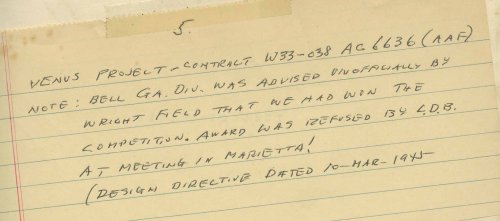 5.
VENUS PROJECT - CONTRACT W33-038 AC 6636 (AAF)
NOTE: BELL GA. DIV. WAS ADVISED UNOFFICIALLY BY
WRIGHT FIELD THAT WE HAD WON THE
COMPETITION. AWARD WAS REFUSED BY L.D.B.
AT MEETING IN MARIETTA!
(DESIGN DIRECTIVE DATED 10-MAR-1945